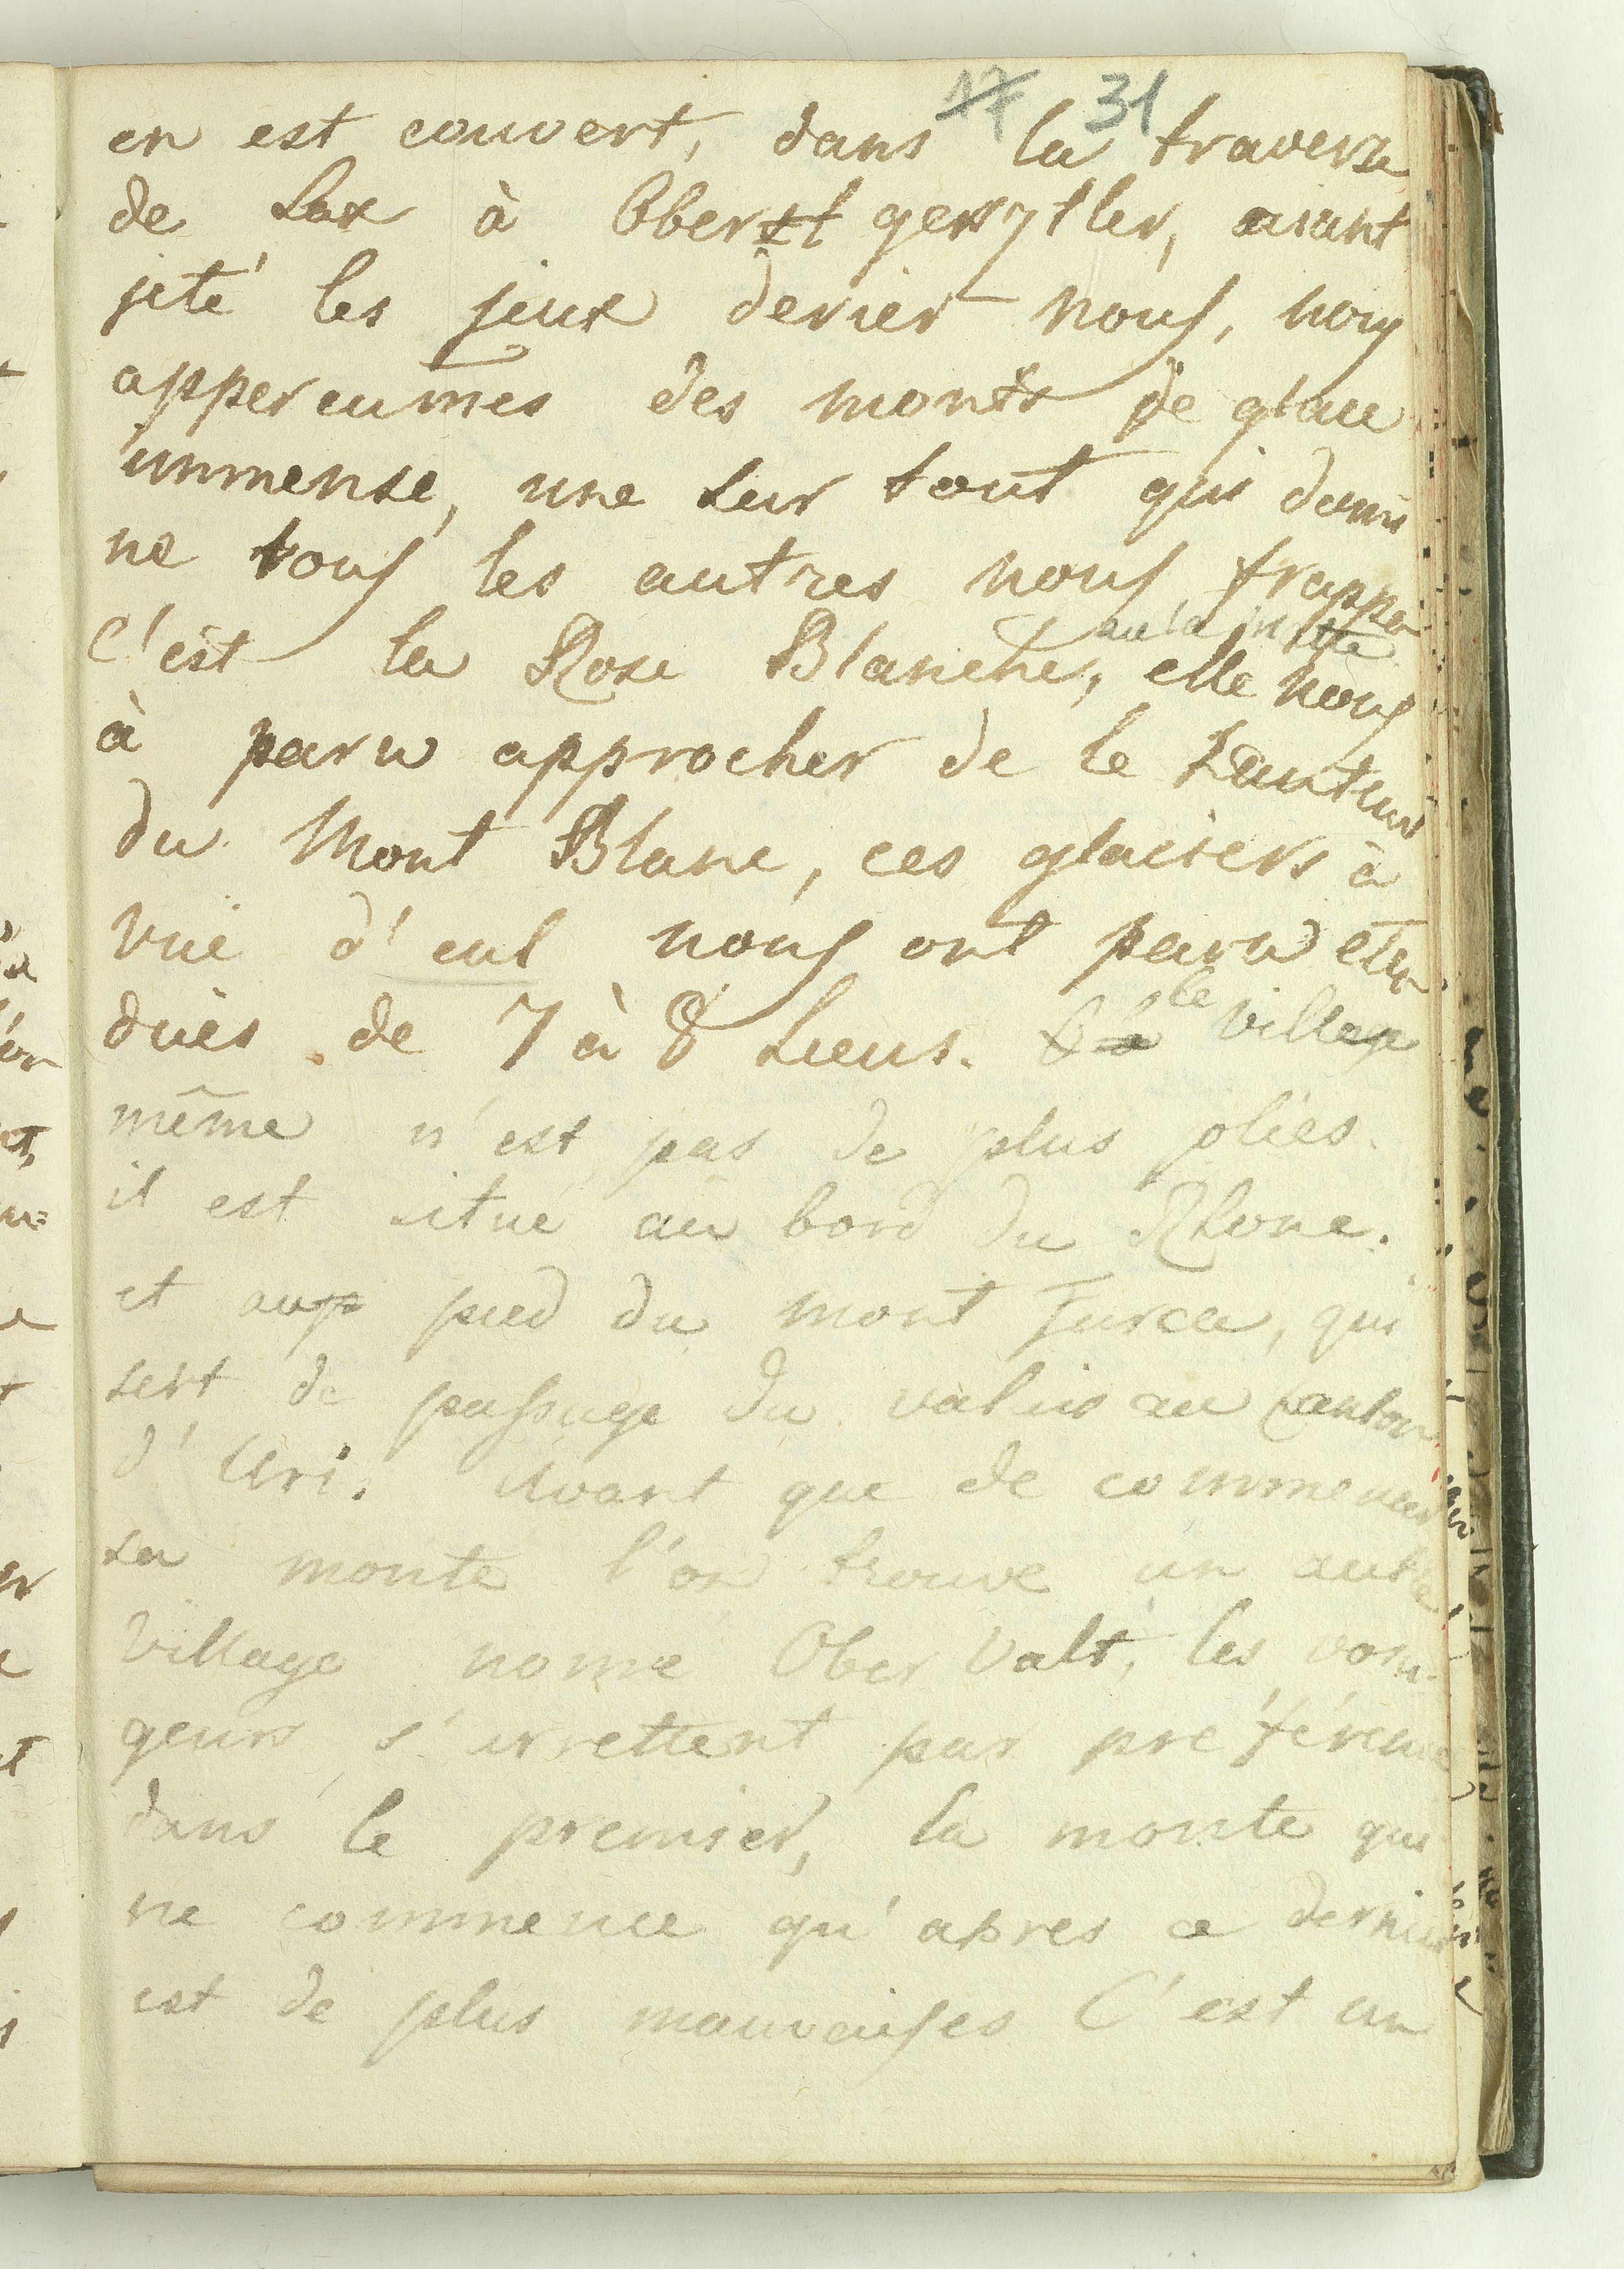 17 31
en est couvert, dans la traverse
de Lax à Oberst gerstler, aiant
jeté les jeux derier nous, nous
appercumes des monts de glace
immense, une sur tout qui domi
ne tous les autres nous frappa
c'est la Rose Blanche, elle nous
à paru approcher de le hauteur
du Mont Blanc, ces glaciers à
vue d'eul nous ont paru eten
dues de 7 à 8 Lieus. le village
même n'est pas de plus jolies.
il est situé au bord du Rhone.
et au pied du mont furca, qui
sert de passage du valais au Canton
d'Uri. Avant que de commencer
sa monte l'on trouve un autre
village nomé Ober Valt, les voia
geurs s'arrettent par préférence
dans le premier, la monte qui
ne commence qu'apres ce dernier
est de plus mauvaises C'est un